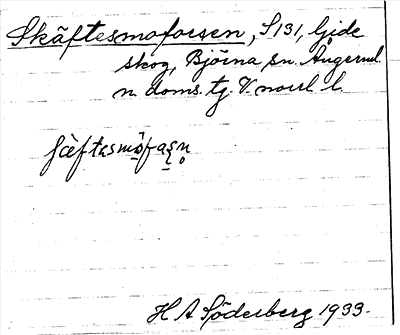 Skäftesmoforsen, S131, Gide
skog, Björna sn. Ångerml.
n. doms. tg. V.norrl. l.
H A Söderberg 1933.